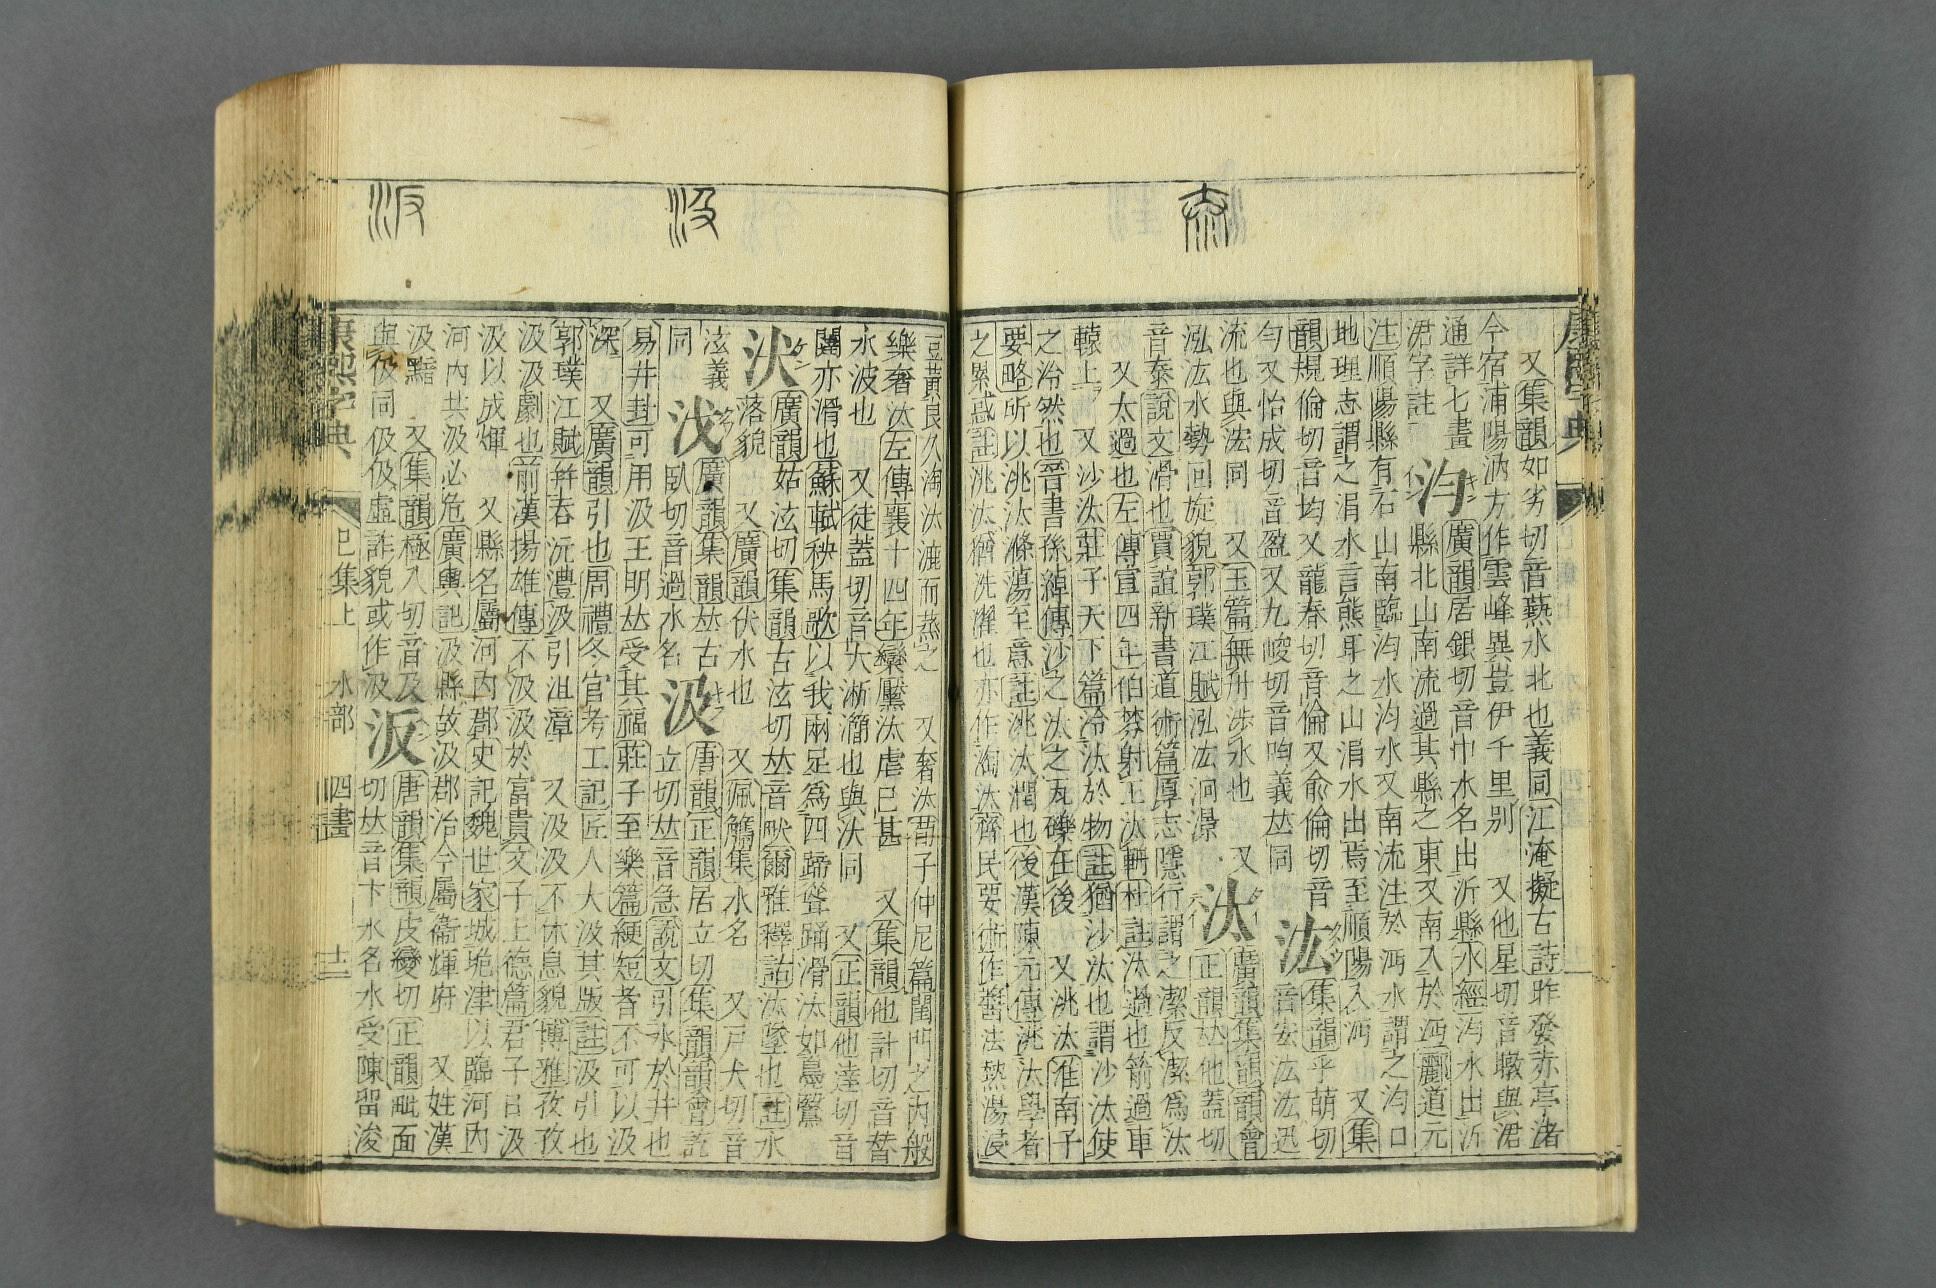 又集韻如劣切音爇水北也義同江淹擬古詩昨發赤亭渚
今宿浦陽汭方作雲峰異豈伊千里別 又他星切音聽與涒
通詳七畫
涒字註 汮 廣韻居銀切音巾水名出沂縣水經沔水出沂
縣北山南流過其縣之東又南入於沔酈道元
注順陽縣有石山南臨汮水汮水又南流注於沔水謂之汮口
地理志謂之涓水言熊耳之山涓水出焉至順陽入沔 又集
韻規倫切音均又龍春切音倫又俞倫切音
勻又怡成切音盈又九峻切音呁義𠀤同 汯 集韻乎萌切
音宏汯汯迅
流也與浤同 又玉篇無舟涉水也 又
泓汯水勢回旋貌郭璞江賦泓汯浻澋 汰 廣韻集韻韻會
正韻𠀤他蓋切
音泰說文滑也賈誼新書道術篇厚志隱行謂之潔反潔爲汰
又太過也左傳宣四年伯棼射王汰輈杜註汰過也箭過車
轅上 又沙汰莊子天下篇泠汰於物註猶沙汰也謂沙汰使
之泠然也晉書孫綽傳沙之汰之瓦礫在後 又洮汰淮南子
要略所以洮汰滌蕩至意註洮汰潤也後漢陳元傳洮汰學者
之累惑註洮汰猶洗濯也亦作淘汰齊民要術作醬法熱湯浸
豆黃良久淘汰漉而蒸之 又奢汰荀子仲尼篇閨門之內般
樂奢汰左傳襄十四年欒黶汰虐已甚 又集韻他計切音替
水波也 又徒蓋切音大淅澗也與汏同 又正韻他達切音
闥亦滑也蘇軾秧馬歌以我兩足爲四蹄聳踊滑汰如鳧鷖
汱 廣韻姑泫切集韻古泫切𠀤音畎爾雅釋詁汱墜也註水
落貌 又廣韻伏水也 又佩觿集水名 又戸犬切音
泫義
同 㳀 廣韻集韻𠀤古
臥切音過水名 汲 唐韻正韻居立切集韻韻會訖
立切𠀤音急說文引水於井也
易井卦可用汲王明𠀤受其福莊子至樂篇綆短者不可以汲
深 又廣韻引也周禮冬官考工記匠人大汲其版註汲引也
郭璞江賦幷吞沅澧汲引沮漳 又汲汲不休息貌博雅孜孜
汲汲劇也前漢揚雄傳不汲汲於富貴文子上德篇君子日汲
汲以成煇 又縣名屬河內郡史記魏世家城垝津以臨河內
河內共汲必危廣輿記汲縣故汲郡治今屬衞輝府 又姓漢
汲黯 又集韻極入切音及
與伋同伋伋虛詐貌或作汲 汳 唐韻集韻皮變切正韻毗面
切𠀤音卞水名水受陳留浚
康熙字典
巳集上 水部 四畫 十二